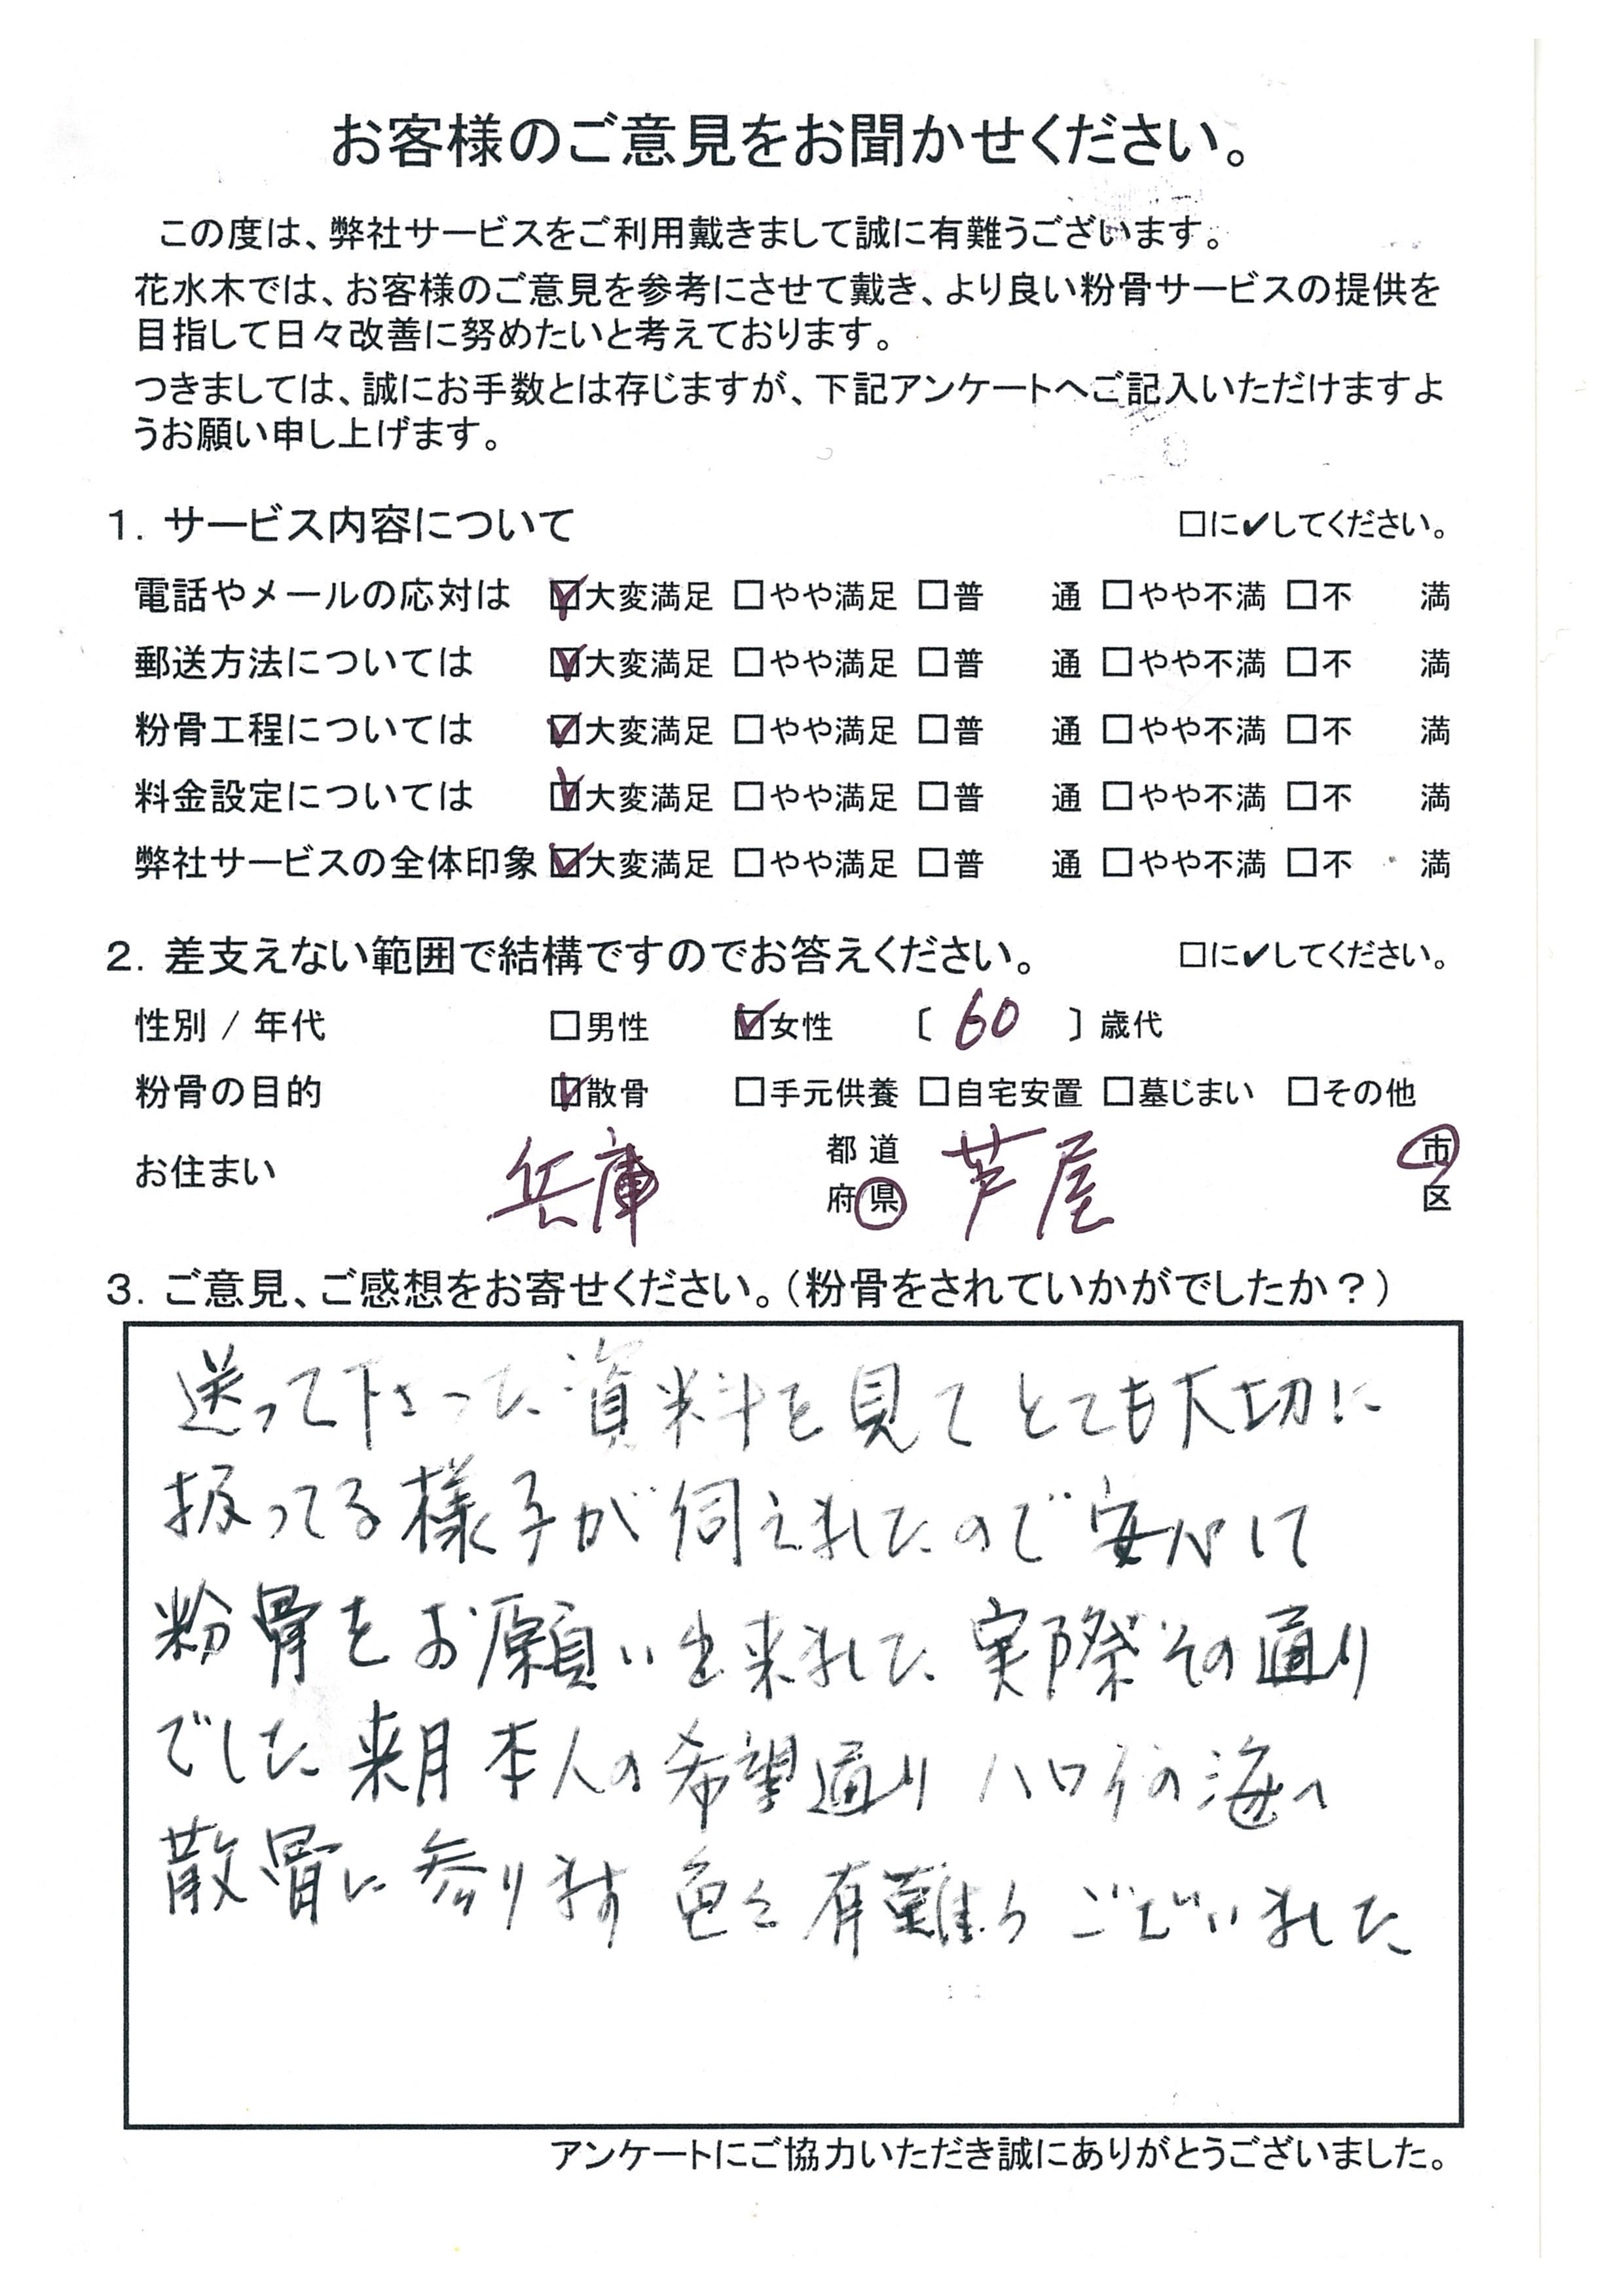 お客様のご意見をお聞かせください。
この度は、弊社サービスをご利用戴きまして誠に有難うございます。
花水木では、お客様のご意見を参考にさせて戴き、より良い粉骨サービスの提供を
目指して日々改善に努めたいと考えております。
つきましては、誠にお手数とは存じますが、下記アンケートへご記入いただけますよ
うお願い申し上げます。
1. サービス内容について □に✔してください。
電話やメールの応対は ☑大変満足 □やや満足 □普 通 □やや不満 □不 満
郵送方法については ☑大変満足 □やや満足 □普 通 □やや不満 □不 満
粉骨工程については ☑大変満足 □やや満足 □普 通 □やや不満 □不 満
料金設定については ☑大変満足 □やや満足 □普 通 □やや不満 □不 満
弊社サービスの全体印象 ☑大変満足 □やや満足 □普 通 □やや不満 □不 満
2. 差支えない範囲で結構ですのでお答えください。 □に✔してください。
性別 / 年代 □男性 ☑女性 〔 60 〕歳代
粉骨の目的 ☑散骨 □手元供養 □自宅安置 □墓じまい □その他
お住まい 兵庫 都道府県 芦屋 市区
3. ご意見、ご感想をお寄せください。（粉骨をされていかがでしたか？）
送って下さった資料を見てとても大切に
扱ってる様子が伺えましたので安心して
粉骨をお願い出来ました 実際その通り
でした 来月本人の希望通りハワイの海へ
散骨に参ります 色々有難うございました
アンケートにご協力いただき誠にありがとうございました。